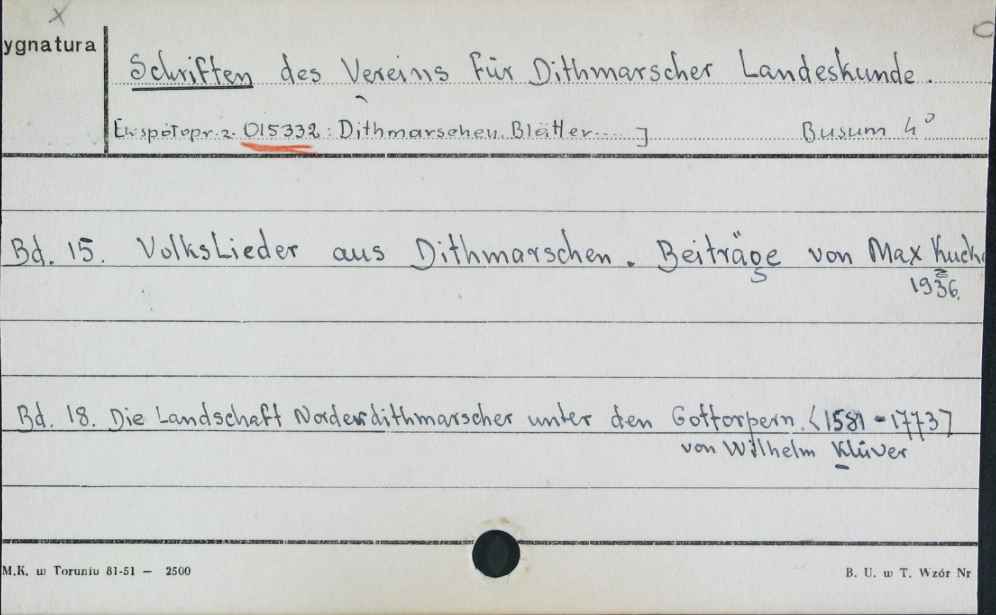 x
ygnatura
Schriften des Vereins für Dithmarscher Landeskunde.
015332: Dithmarschen Blätter....] Busum 4°
Bd. 15. Volkslieder aus Dithmarschen. Beiträge von Max Kuck
1936.
Bd. 18. Die Landschaft Norderdithmarscher unter den Gottorpern. <1581 - 1773]
von Wilhelm Klüver
M.K. w Toruniu 81-51 — 2500 B. U. w T. Wzór Nr